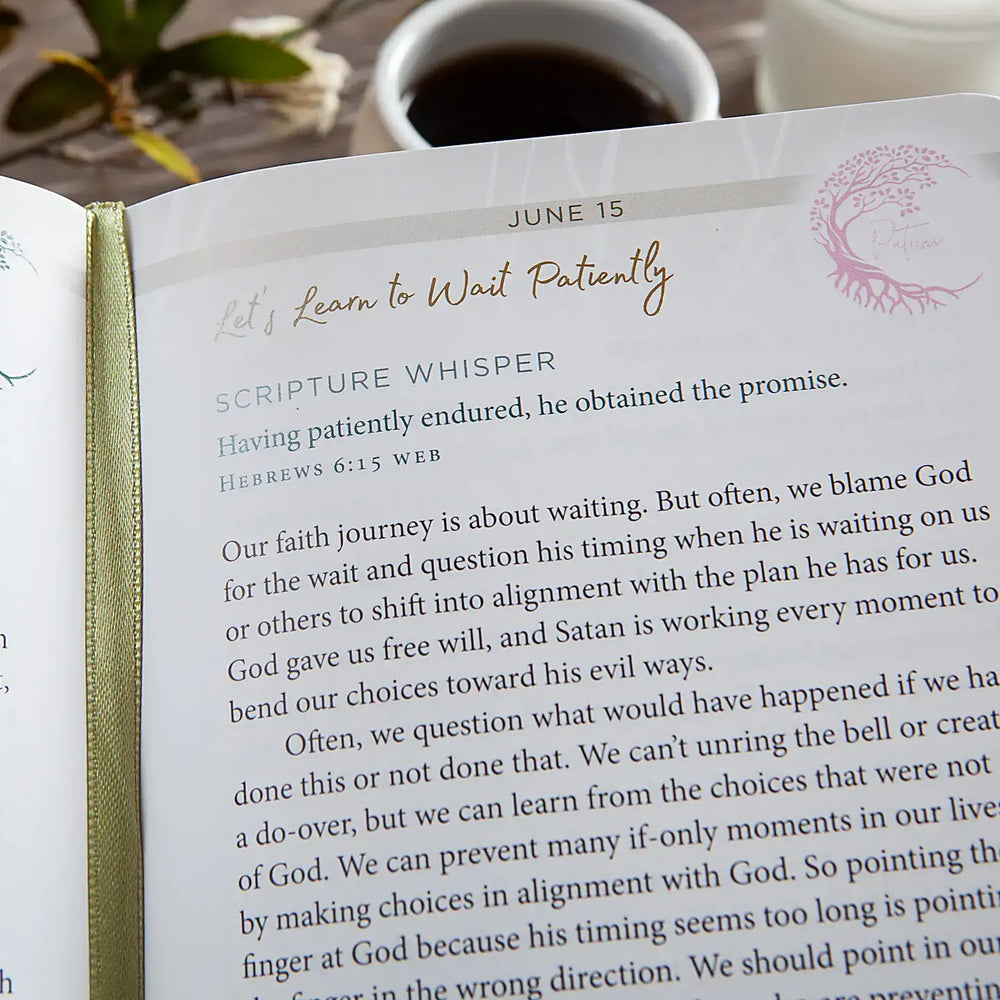 JUNE 15
Let's Learn to Wait Patiently
SCRIPTURE WHISPER
Having patiently endured, he obtained the promise.
HEBREWS 6:15 WEB
Our faith journey is about waiting. But often, we blame God
for the wait and question his timing when he is waiting on us
or others to shift into alignment with the plan he has for us.
God gave us free will, and Satan is working every moment to
bend our choices toward his evil ways.
Often, we question what would have happened if we ha
done this or not done that. We can't unring the bell or creat
a do-over, but we can learn from the choices that were not
of God. We can prevent many if-only moments in our lives
by making choices in alignment with God. So pointing the
finger at God because his timing seems too long is pointi
finger in the wrong direction. We should point in our